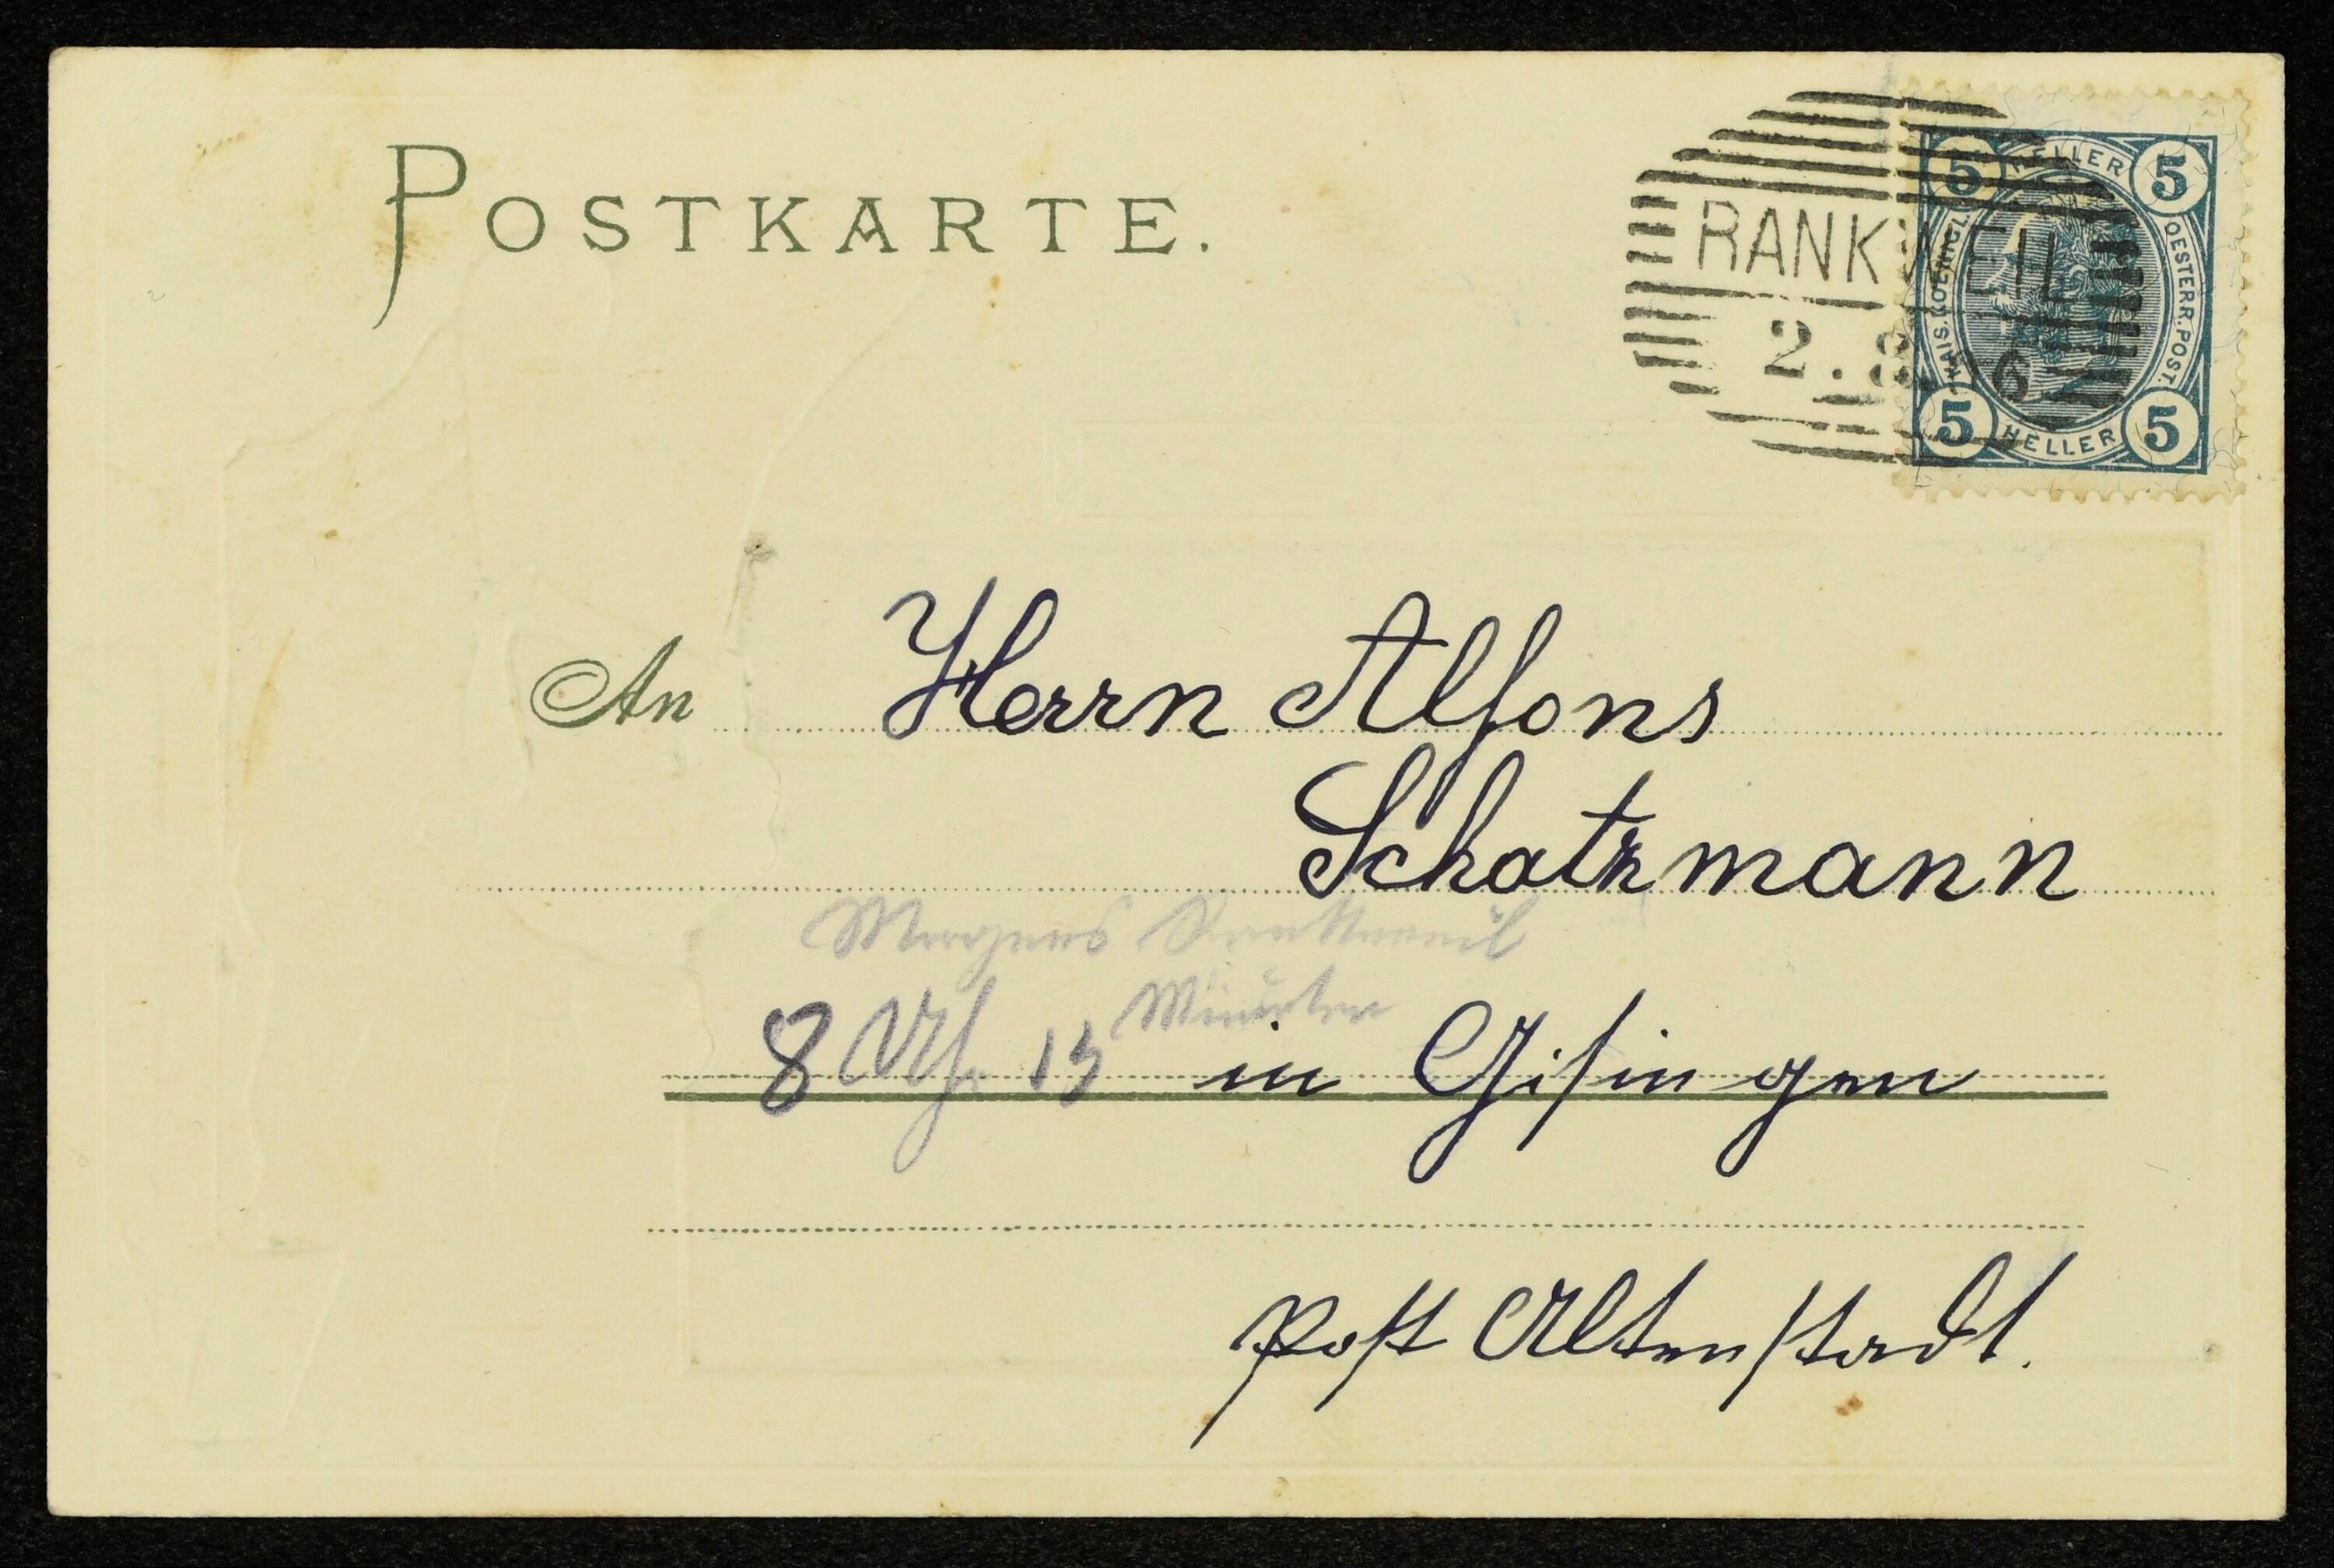 POSTKARTE.
5 HELLER 5
KAIS. KOENIGL. OESTERR. POST.
5 HELLER 5
RANKWEIL
2. 6
An Herrn Alfons
Schatzmann
Morgens Rankweil
8 Uhr 13 Minuten
in Gisingen
Post Altenstadt.